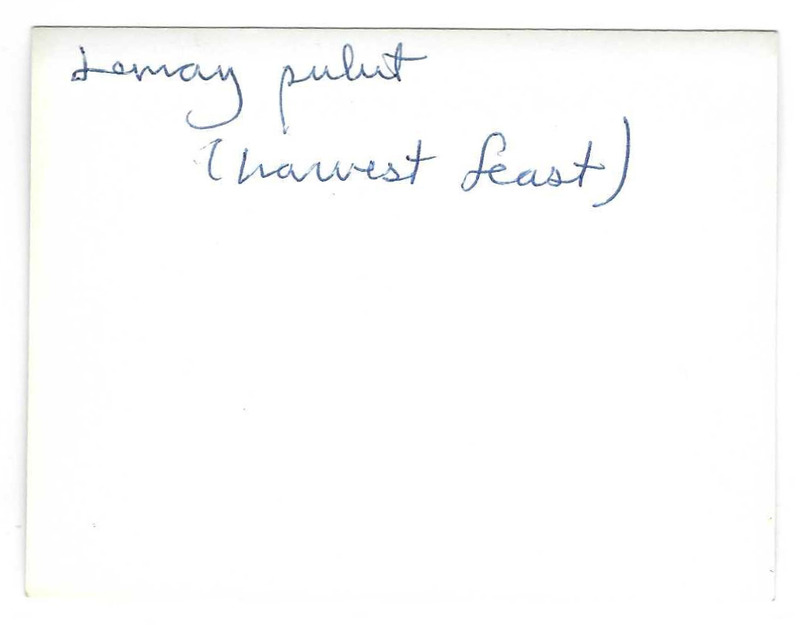 Lemay pulut
(harvest feast)